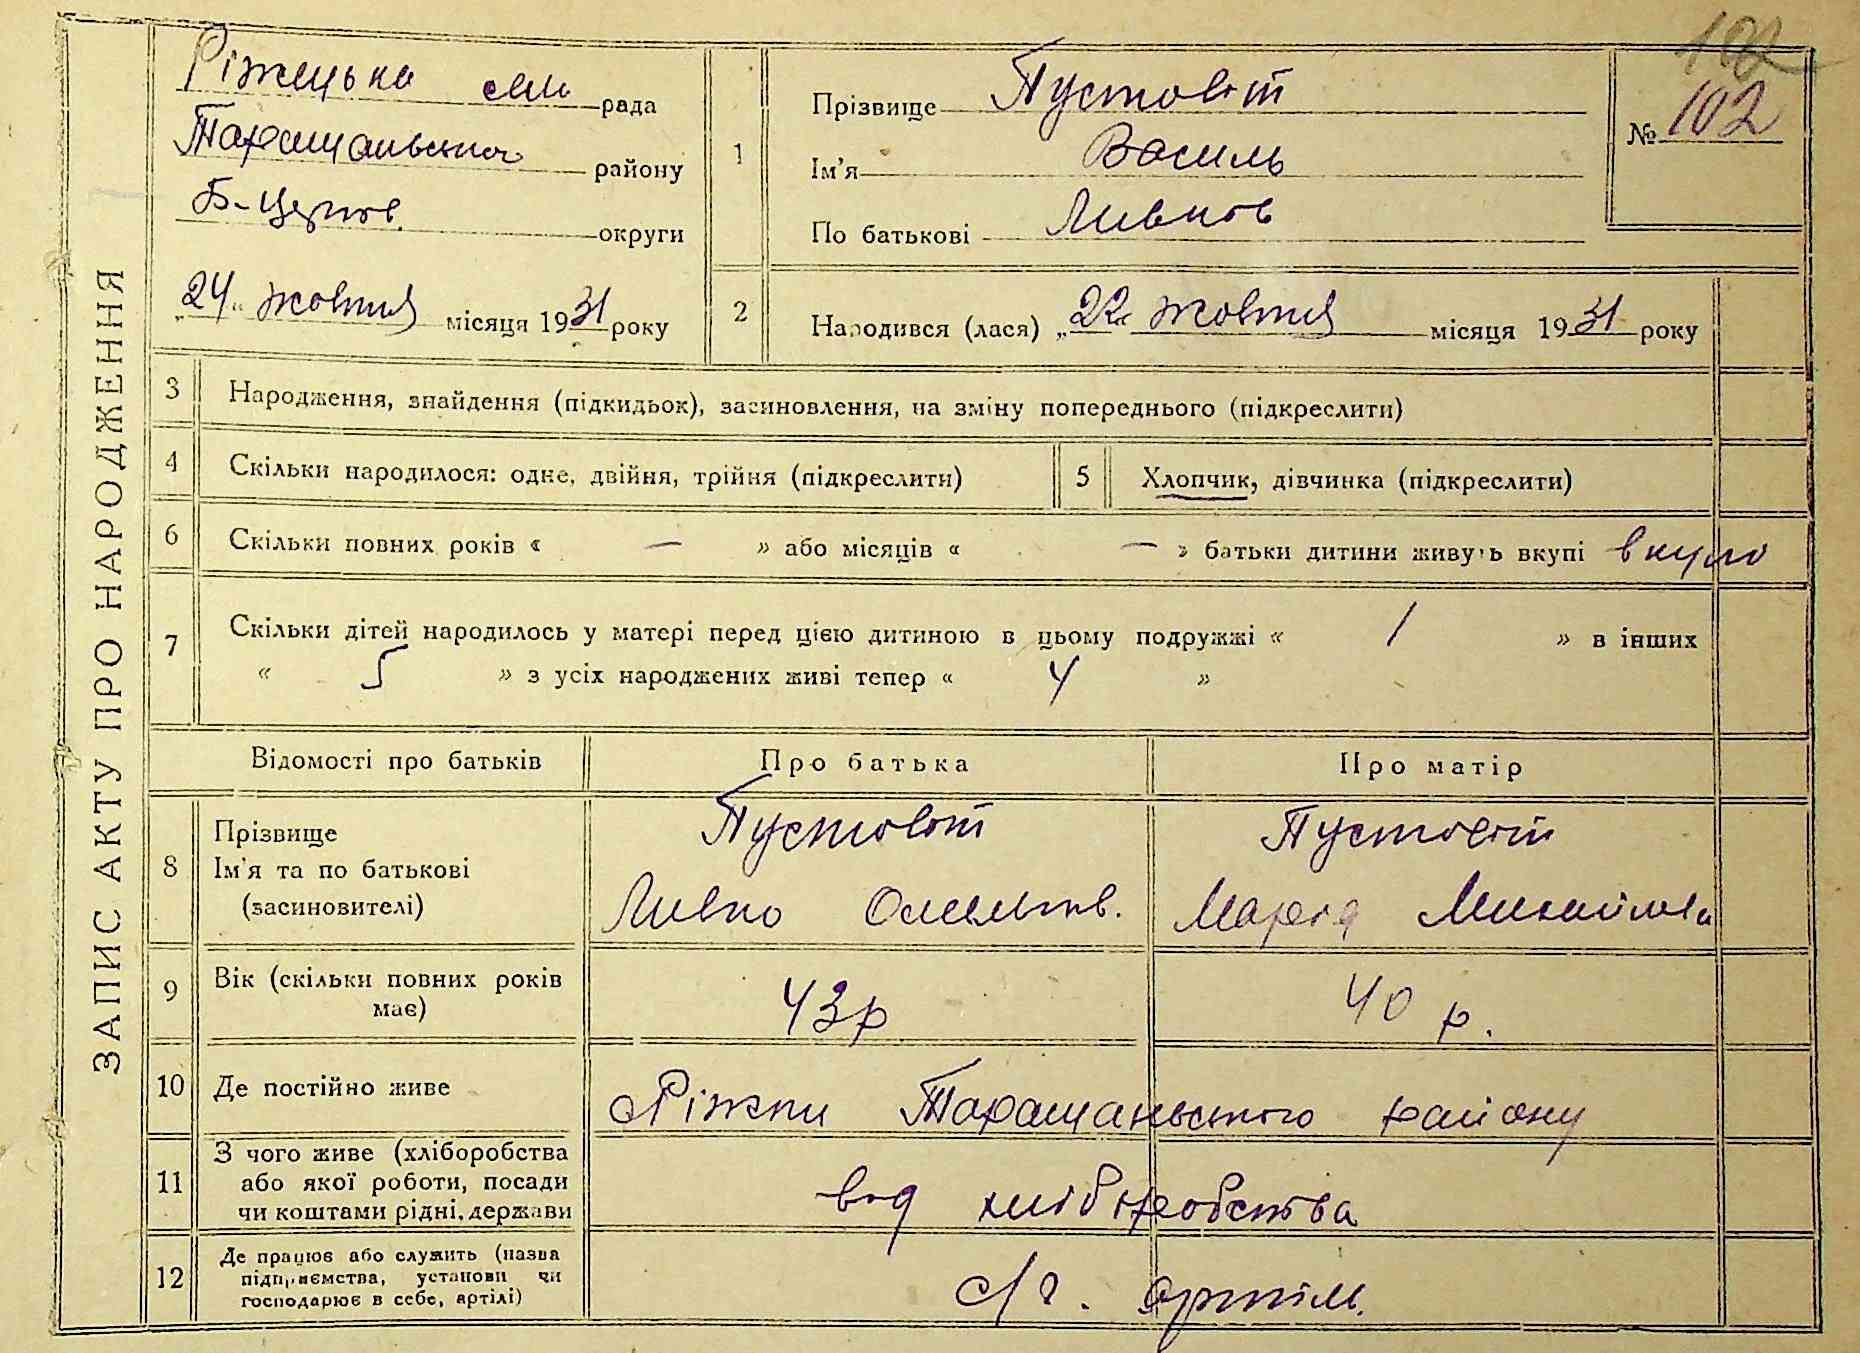 102
ЗАПИС АКТУ ПРО НАРОДЖЕННЯ
Ріжецька сель рада
Таращанського району
Б-Церків. округи
„24" жовтня місяця 1931 року
1
Прізвище Пустовіт
Ім'я Василь
По батькові Ливков
№ 102
2
Народився (лася) „22" жовтня місяця 1931 року
3 Народження, знайдення (підкидьок), засиновлення, на зміну попереднього (підкреслити)
4 Скільки народилося: одне, двійня, трійня (підкреслити)
5 Хлопчик, дівчинка (підкреслити)
6 Скільки повних років « — » або місяців « — » батьки дитини живуть вкупі вкупі
7 Скільки дітей народилось у матері перед цією дитиною в цьому подружжі « 1 » в інших
« 5 » з усіх народжених живі тепер « 4 »
Відомості про батьків Про батька Про матір
8 Прізвище
Ім'я та по батькові
(засиновителі)
Пустовіт
Ливко
Пустовіт
Марія Михайлова
9 Вік (скільки повних років
має)
43р
40 р.
10 Де постійно живе
с Ріжки Таращанського району
11 З чого живе (хліборобства
або якої роботи, посади
чи коштами рідні, держави
від хліборобства
12 Де працює або служить (назва
підприємства, установи чи
господарює в себе, артілі)
с/г. артіль.